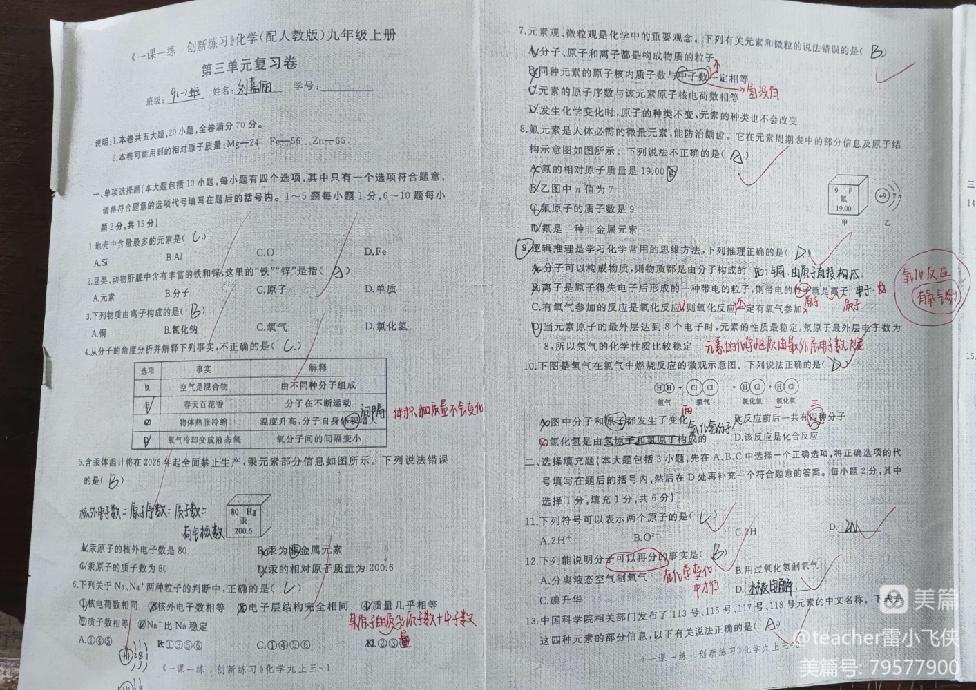 《一课一练 创新练习》化学(配人教版)九年级上册
第三单元复习卷
班级: 姓名: 学号:
说明:1.本卷共五大题,20小题,全卷满分70分。
2.本卷可能用到的相对原子质量:Mg—24 Fe—56 Zn—65
一、单项选择题(本大题包括10小题,每小题有四个选项,其中只有一个选项符合题意,
请将符合题意的选项代号填写在题后的括号内。1~5题每小题1分,6~10题每小
题2分,共15分)
1.地壳中含量最多的元素是( C )
A.Si B.Al C.O D.Fe
2.豆类、动物肝脏中含有丰富的铁和锌,这里的“铁”“锌”是指( A )
A.元素 B.分子 C.原子 D.单质
3.下列物质由离子构成的是( B )
A.铜 B.氯化钠 C.氧气 D.氯化氢
4.从分子的角度分析并解释下列事实,不正确的是( C )
选项 事实 解释
A 空气是混合物 由不同种分子组成
B 春天百花香 分子在不断运动
C 物体热胀冷缩 温度升高,分子自身体积 间隔
D 氧气冷却变成液态氧 氧分子间的间隔变小
5.含汞体温计将在2026年起全面禁止生产,汞元素部分信息如图所示。下列说法错误
的是( B )
核外电子数=原子序数=质子数=
核电荷数
80 Hg
汞
200.6
A.汞原子的核外电子数是80 B.汞为非金属元素
C.汞原子的质子数为80 D.汞的相对原子质量为200.6
6.下列关于Na、Na⁺两种粒子的判断中,正确的是( C )
①核电荷数相同 ②核外电子数相等 ③电子层结构完全相同 ④质量几乎相等
⑤质子数相等 ⑥Na⁺比Na稳定
A.①④⑤ B.①③⑤⑥ C.①④⑤⑥ D.②③
《一课一练 创新练习》化学九上三-1
7.元素观、微粒观是化学中的重要观念。下列有关元素和微粒的说法错误的是( B )
A.分子、原子和离子都是构成物质的粒子
B.同种元素的原子核内质子数与中子数一定相等
C.元素的原子序数与该元素原子核电荷数相等
D.发生化学变化时,原子的种类不变,元素的种类也不会改变
8.氟元素是人体必需的微量元素,能防治龋齿。它在元素周期表中的部分信息及原子结
构示意图如图所示。下列说法不正确的是( A )
A.氟的相对原子质量是19.00g
B.乙图中n值为7
C.氟原子的质子数是9
D.氟是一种非金属元素
9 F
氟
19.00
甲 乙
9.逻辑推理是学习化学常用的思维方法,下列推理正确的是( D )
A.分子可以构成物质,则物质都是由分子构成的
B.离子是原子得失电子后形成的一种带电的粒子,则带电的粒子就是离子
C.有氧气参加的反应是氧化反应,则氧化反应一定有氧气参加
D.当元素原子的最外层达到8个电子时,元素的性质最稳定,氖原子最外层电子数为
8,所以氖气的化学性质比较稳定
10.下图是氢气在氯气中燃烧反应的微观示意图。下列说法正确的是( D )
氢气 氯气 氯化氢 氯化氢
A.图中分子和原子都发生了变化 B.反应前后一共有四种分子
C.氯化氢是由氢原子和氯原子构成的 D.该反应是化合反应
二、选择填充题(本大题包括3小题,先在A、B、C中选择一个正确选项,将正确选项的代
号填写在题后的括号内,然后在D处再补充一个符合题意的答案。每小题2分,其中
选择1分,填充1分,共6分)
11.下列符号可以表示两个原子的是( C )
A.2H⁺ B.O²⁻ C.2H D. 2N
12.下列能说明分子可以再分的事实是( B )
A.分离液态空气制氧气 B.用过氧化氢制氧气
C.碘升华 D. 水被电解
13.中国科学院相关部门发布了113号、115号、117号、118号元素的中文名称。下表是
这四种元素的部分信息,以下有关说法正确的是( A )
《一课一练 创新练习》化学九上三-2
氧化反应
美篇
@teacher雷小飞侠
美篇号: 79577900